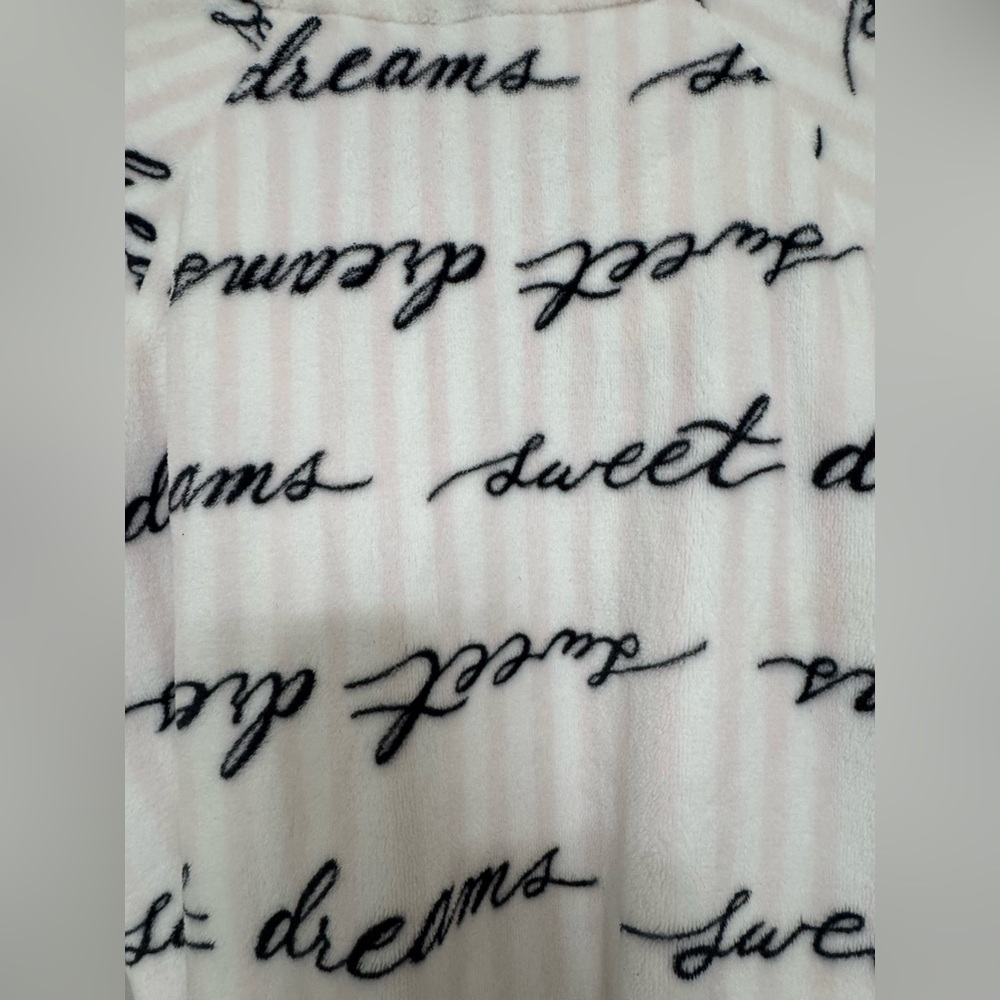 dreams s
sweet dreams
dams sweet d
sweet dre
dreams swe